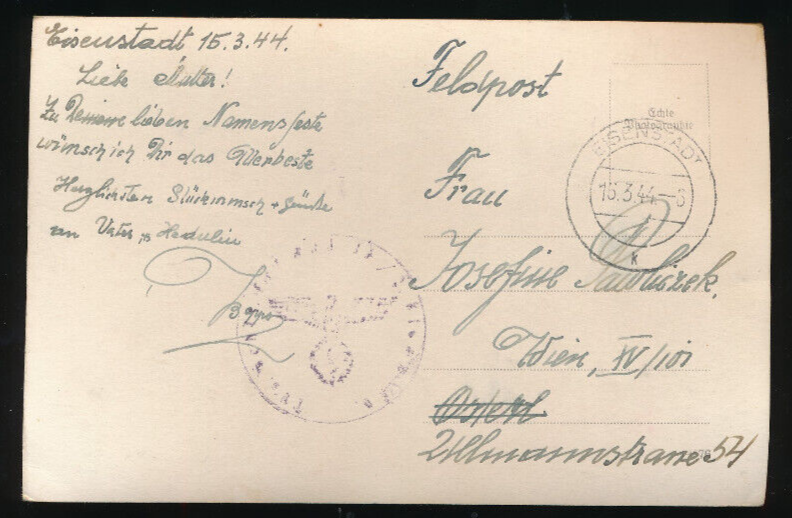 Eisenstadt 15.3.44.
Liebe Mutter!
Zu Deinem lieben Namensfeste
wünsch ich Dir das Allerbeste
Herzlichsten Glückwunsch + Grüße
an Vater,
Feldpost
Echte
Photographie
EISENSTADT
16.3.44.-8
k
Frau
Josefine Pawliczek,
Wien, XV/101
Ullmannstrasse 54